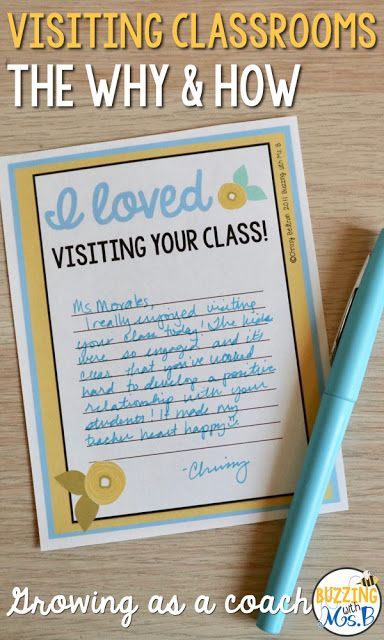 VISITING CLASSROOMS
THE WHY & HOW
I loved
VISITING YOUR CLASS!
Ms Morales,
I really enjoyed visiting
your class today! The kids
were so engaged and it's
clear that you've worked
hard to develop a positive
relationship with your
students! It made my
teacher heart happy
-Chrissy
©Chrissy Beltran 2017 Buzzing with Ms. B
Growing as a coach
BUZZING
with
Ms.B